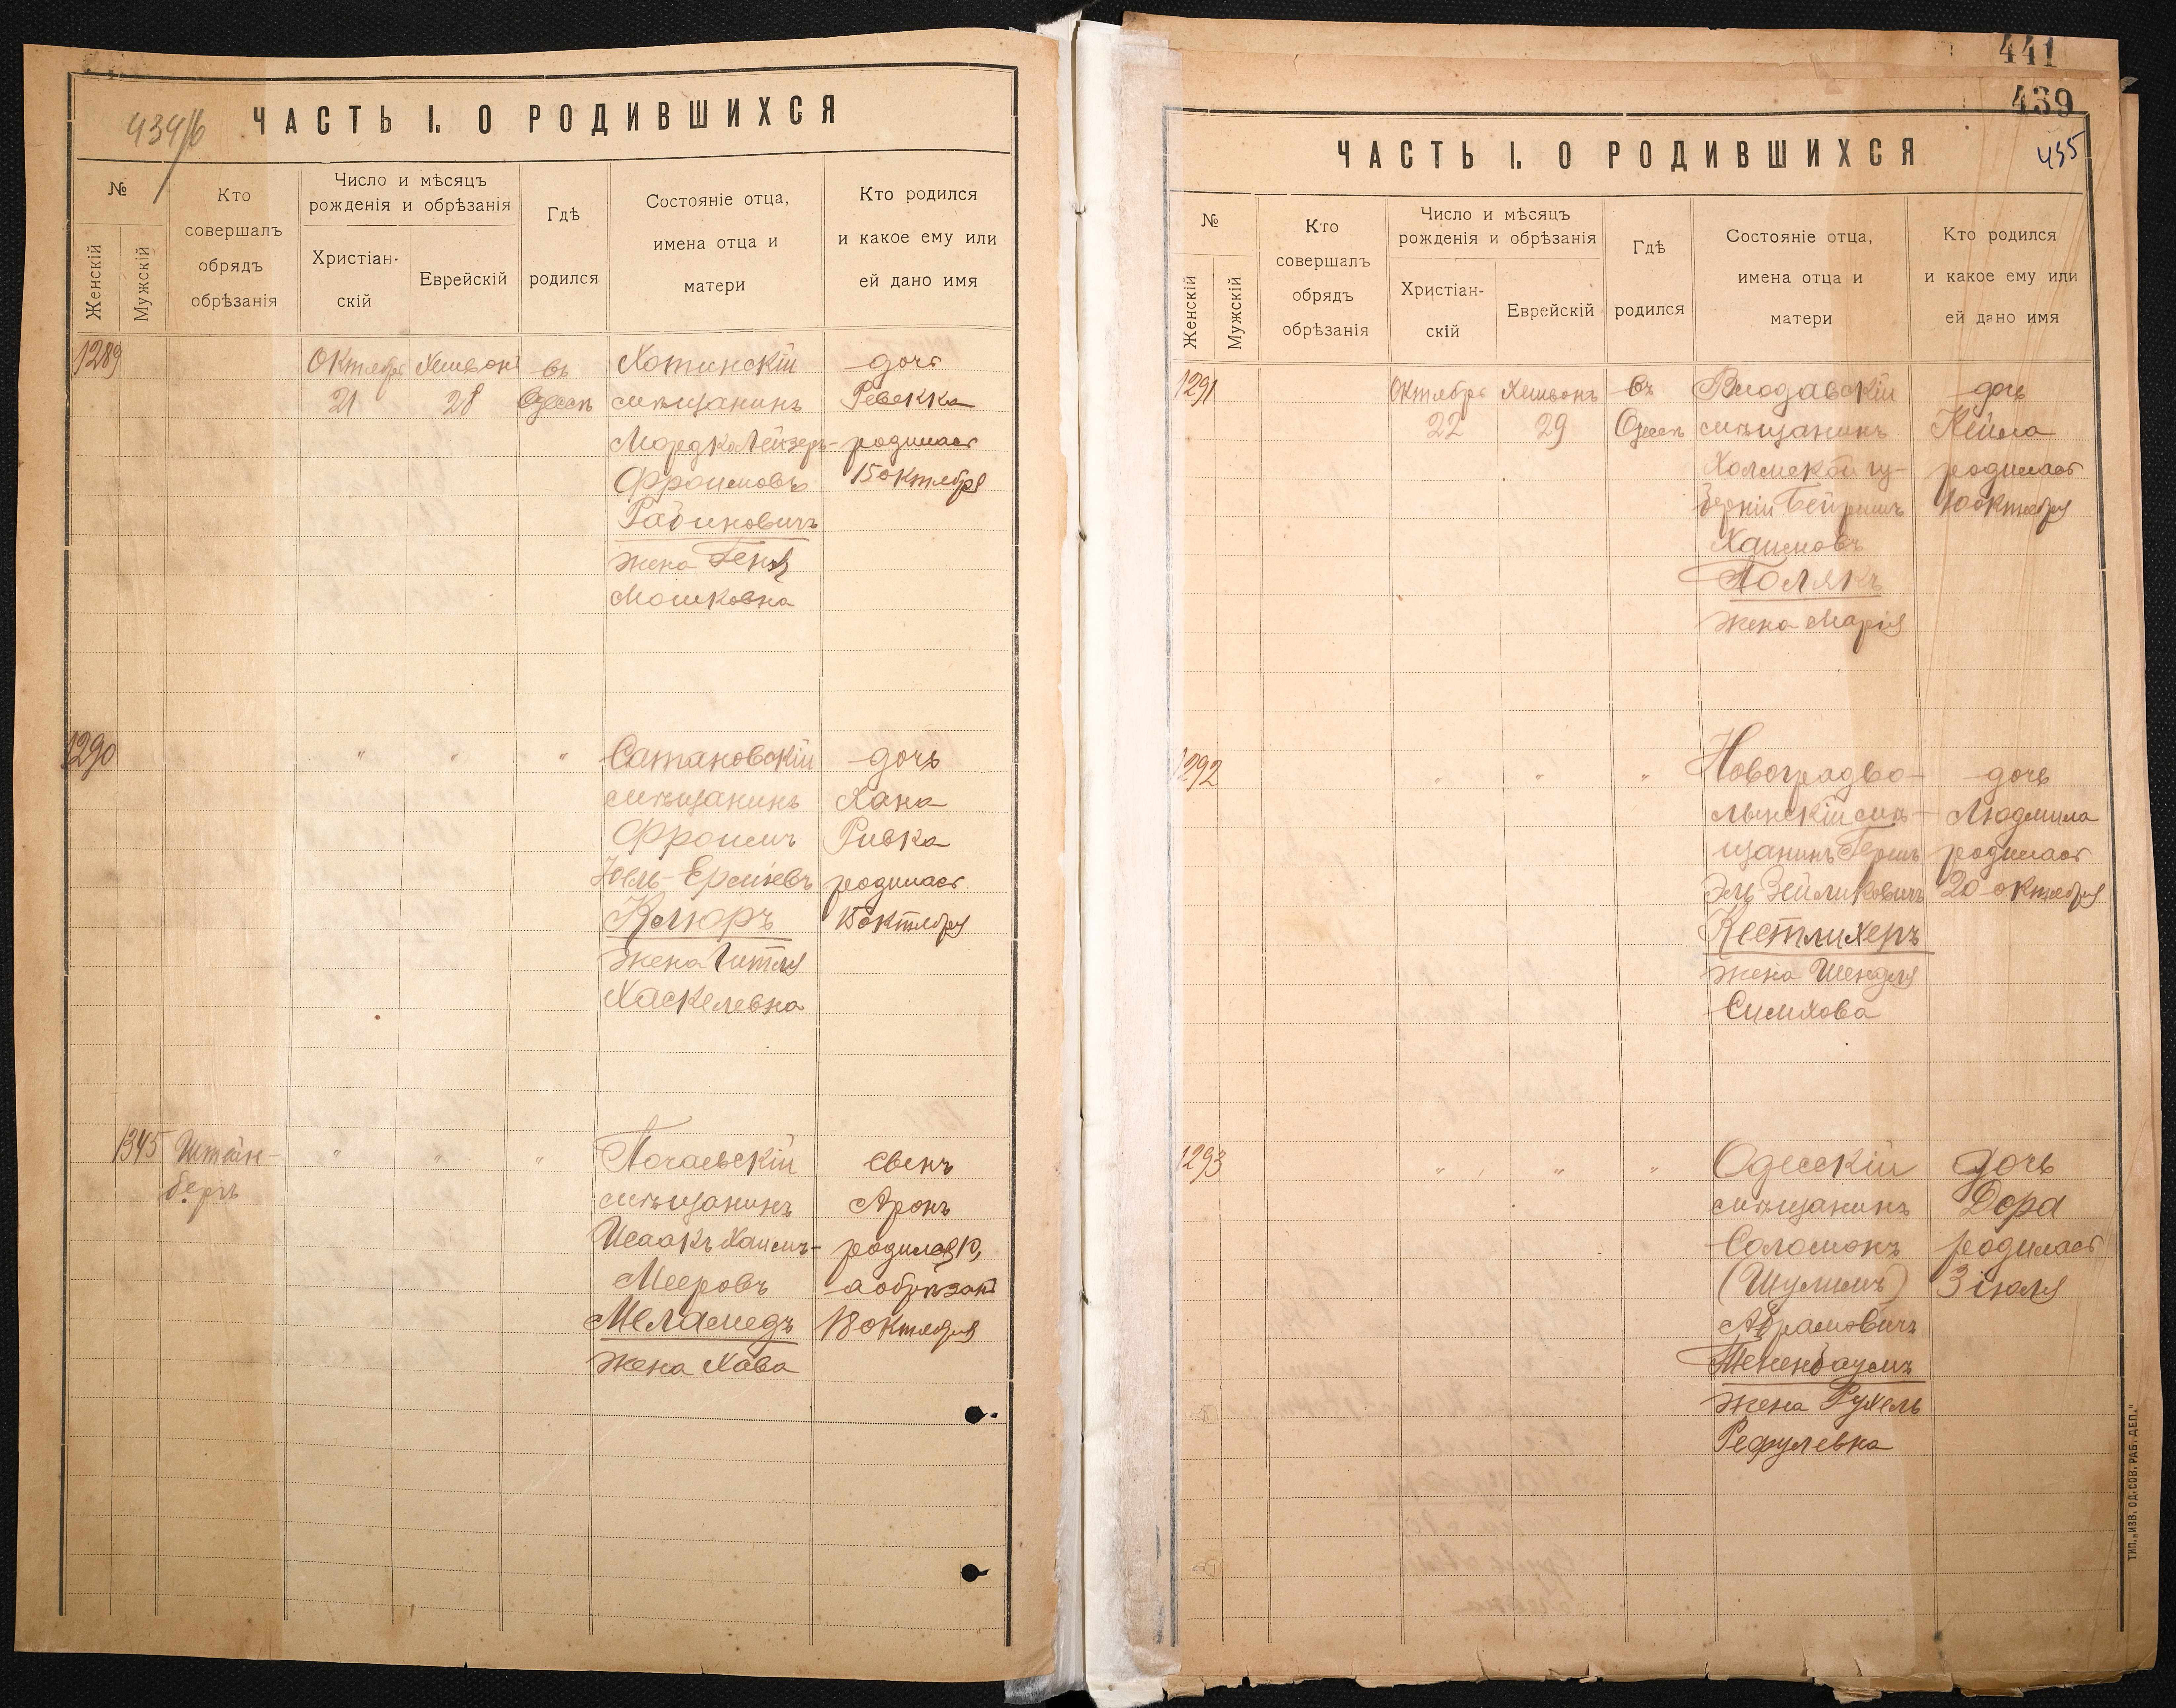 434/б
ЧАСТЬ I. О РОДИВШИХСЯ
№
Женскій
Мужскій
Кто
совершалъ
обрядъ
обрѣзанія
Число и мѣсяцъ
рожденія и обрѣзанія
Христіан-
скій
Еврейскій
Гдѣ
родился
Состояніе отца,
имена отца и
матери
Кто родился
и какое ему или
ей дано имя
1289
Октябрь
21
Хешвонъ
28
въ
Одессѣ
Хотинскій
мѣщанинъ
Мордко Лейзеръ-
Фроимовъ
Рабиновичъ
жена Геня
Мошковна
дочь
Ревекка
родилась
15 октября
1290
" " "
Сатановскій
мѣщанинъ
Фроимъ
Юель-
Клюръ
жена Гитля
Хаскелевна
дочь
Хана
Ривка
родилась
15 октября
1345
Штейн-
бергъ
" " "
Почаевскій
мѣщанинъ
Исаакъ Хаимъ-
Мееровъ
Меламедъ
жена Хава
сынъ
Аронъ
родился 10,
а обрѣзанъ
18 октября
441
439
435
ЧАСТЬ I. О РОДИВШИХСЯ
№
Женскій
Мужскій
Кто
совершалъ
обрядъ
обрѣзанія
Число и мѣсяцъ
рожденія и обрѣзанія
Христіан-
скій
Еврейскій
Гдѣ
родился
Состояніе отца,
имена отца и
матери
Кто родился
и какое ему или
ей дано имя
1291
Октябрь
22
Хешвонъ
29
въ
Одессѣ
Влодавскій
мѣщанинъ
Холмской гу-
берніи Бейришъ
Хаимовъ
Полякъ
жена Марія
дочь
Кейла
родилась
10 октября
1292
" " "
Новоградво-
лынскій мѣ-
щанинъ Гершъ
Эль Зейликовичъ
Кестлихеръ
жена Шендля
Симхова
дочь
Людмила
родилась
20 октября
1293
" " "
Одесскій
мѣщанинъ
Соломонъ
(Шулимъ)
Абрамовичъ
Тененбаумъ
жена Рухель
Рефулевна
дочь
Дора
родилась
3 іюля
ТИП. „ИЗВ. ОД. СОВ. РАБ. ДЕП."